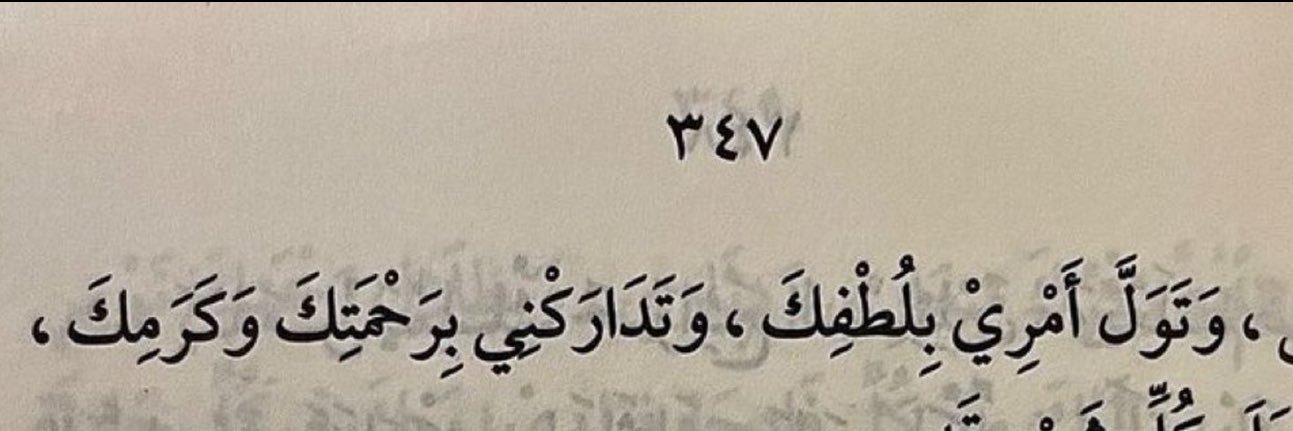 ٣٤٧
، وَتَوَلَّ أَمْرِيْ بِلُطْفِكَ ، وَتَدَارَكْنِي بِرَحْمَتِكَ وَكَرَمِكَ ،